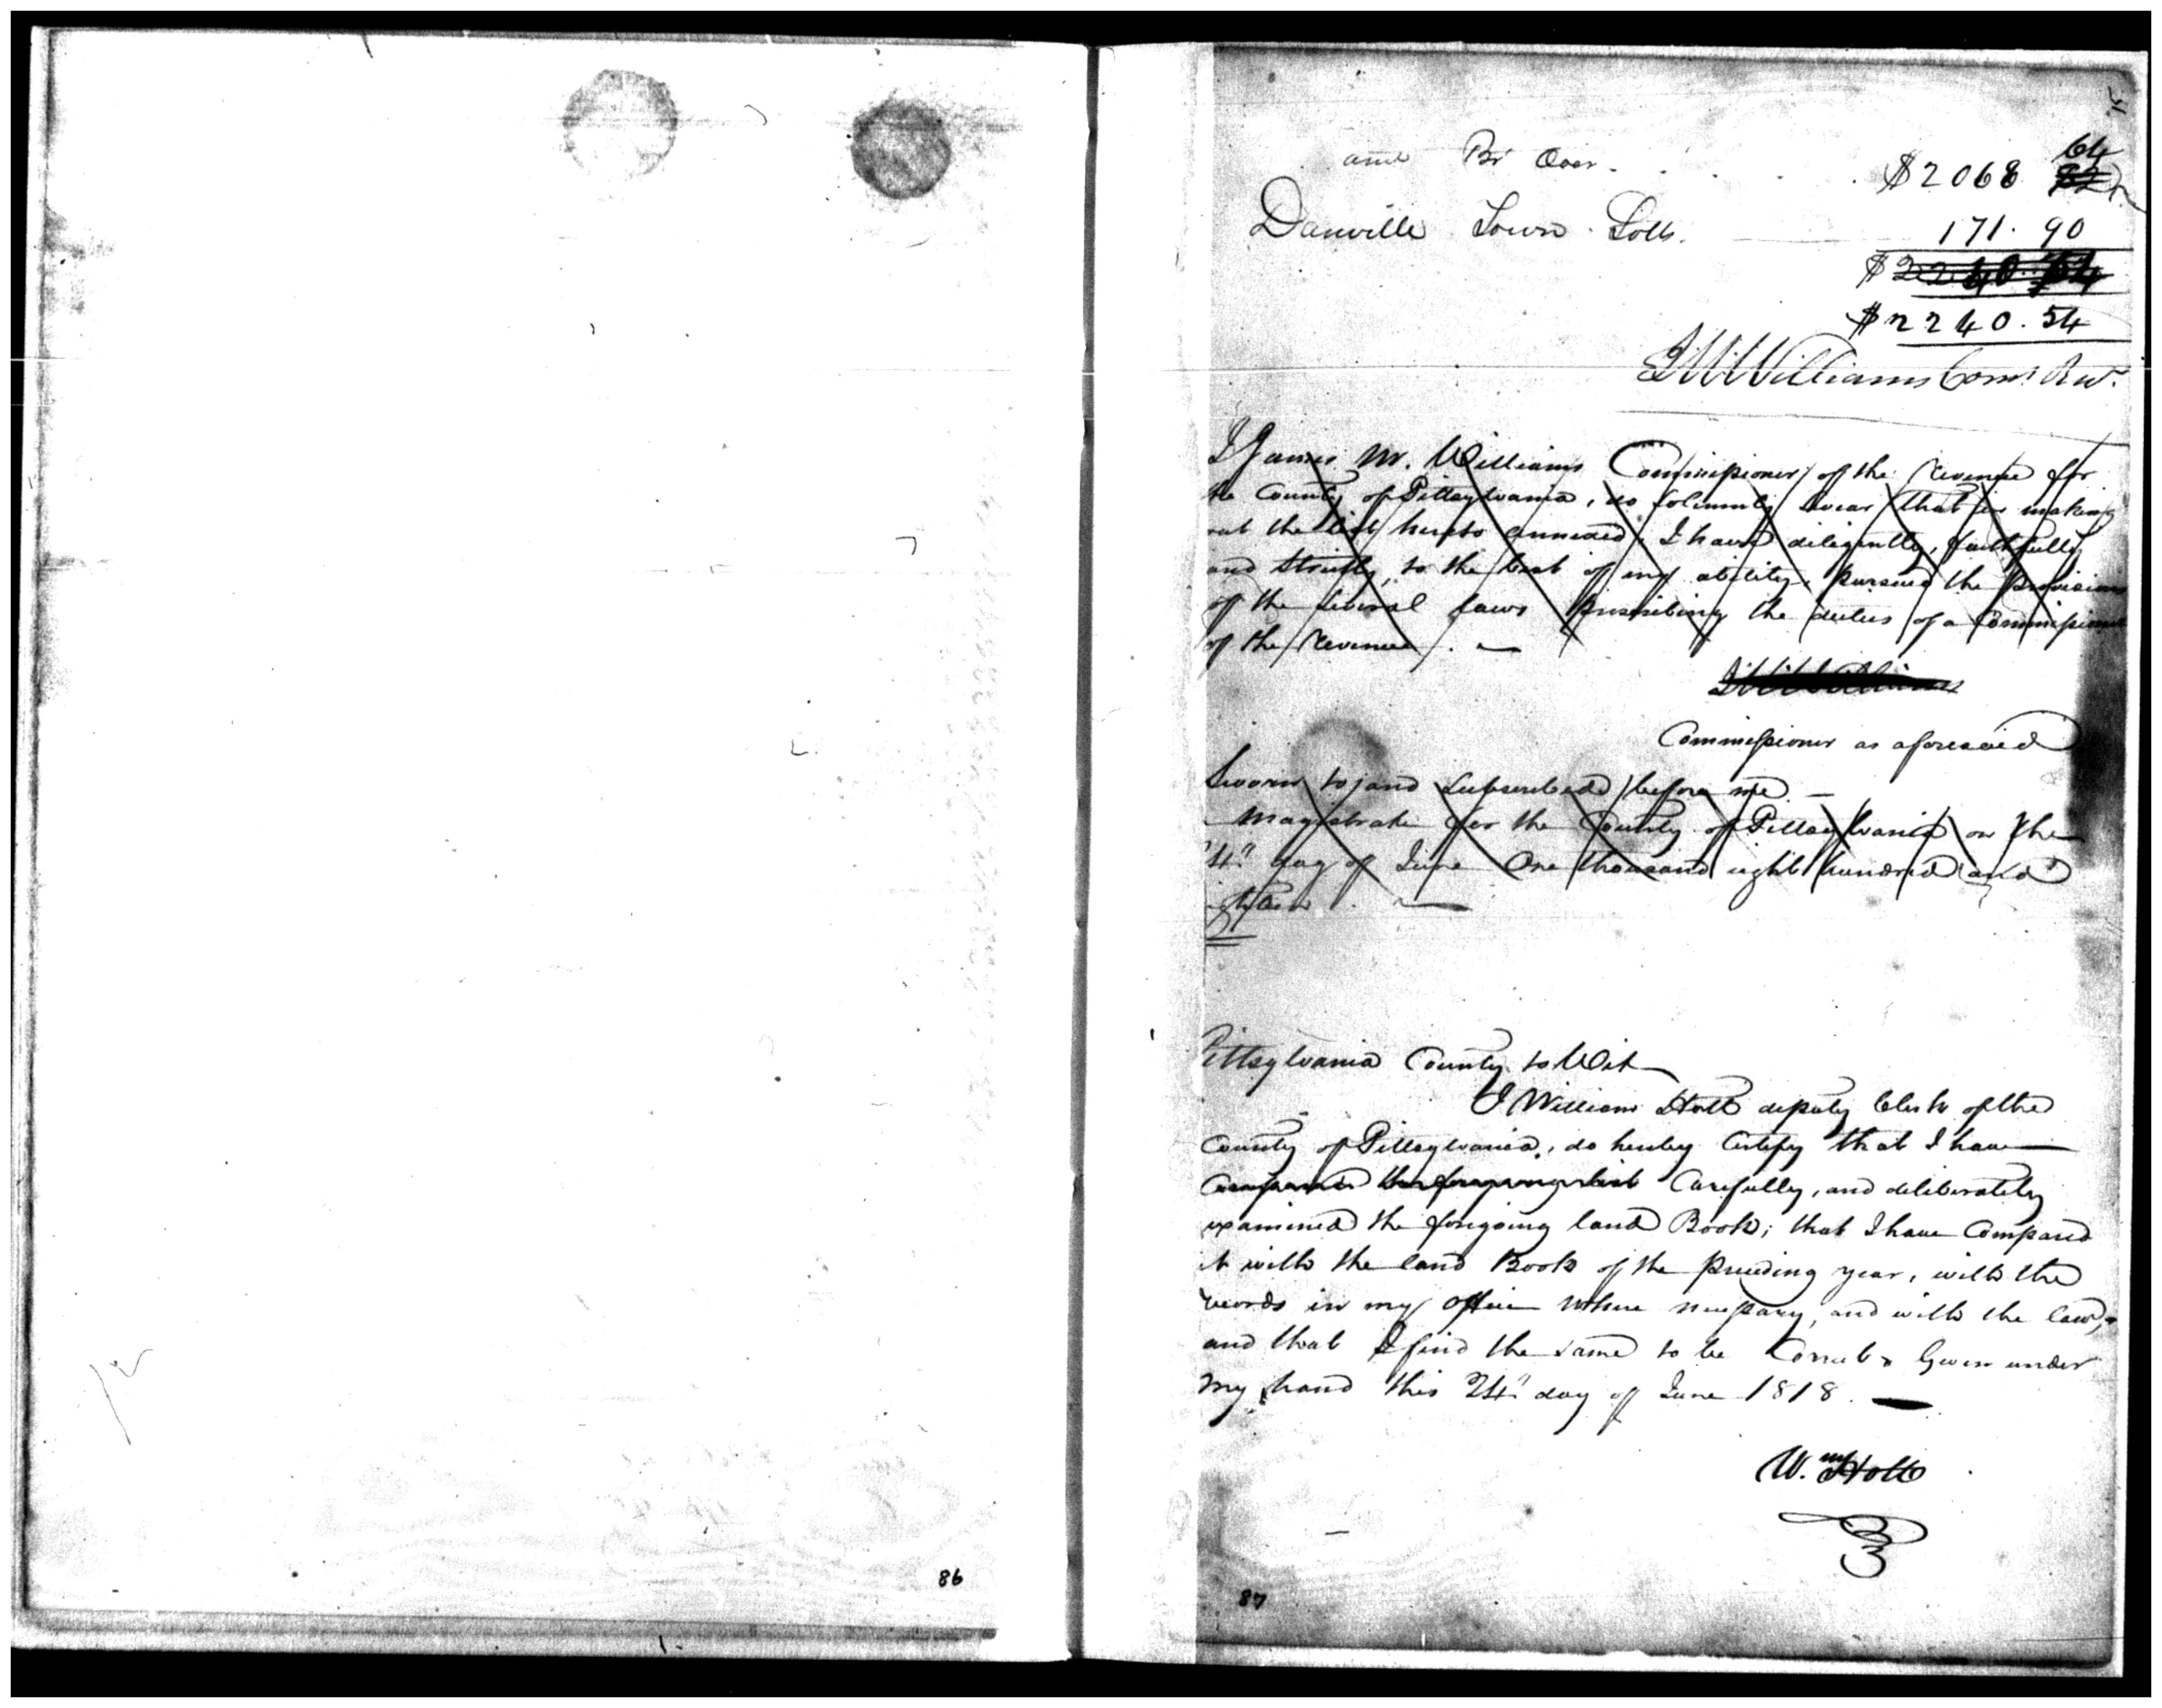 amt Br Over. $2068 64
Danville Town Lotts. 171. 90
$2240.54
$2240.54
J M Williams Comr. Rev.
I James M. Williams Commissioner of the Revenue for
the County of Pittsylvania, do Solemnly Swear that in making
out the list hereto annexed, I have diligently, faithfully
and Strictly, to the best of my ability, pursued the provisions
of the several laws prescribing the duties of a Commissioner
of the Revenue. —
J M Williams
Commissioner as aforesaid
Sworn to and Subscribed before me —
Magistrate for the County of Pittsylvania on the
day of June One thousand eight hundred and
eighteen. —
Pittsylvania County to Wit
I William Holt deputy Clerk of the
County of Pittsylvania, do hereby Certify that I have
Compared the foregoing list Carefully, and deliberately
examined the foregoing land Book; that I have Compared
it with the land Book of the preceding year, with the
records in my office where necessary, and with the law,
and that I find the same to be Correct. Given under
my hand this 24th day of June 1818. —
Wm Holt
86
87